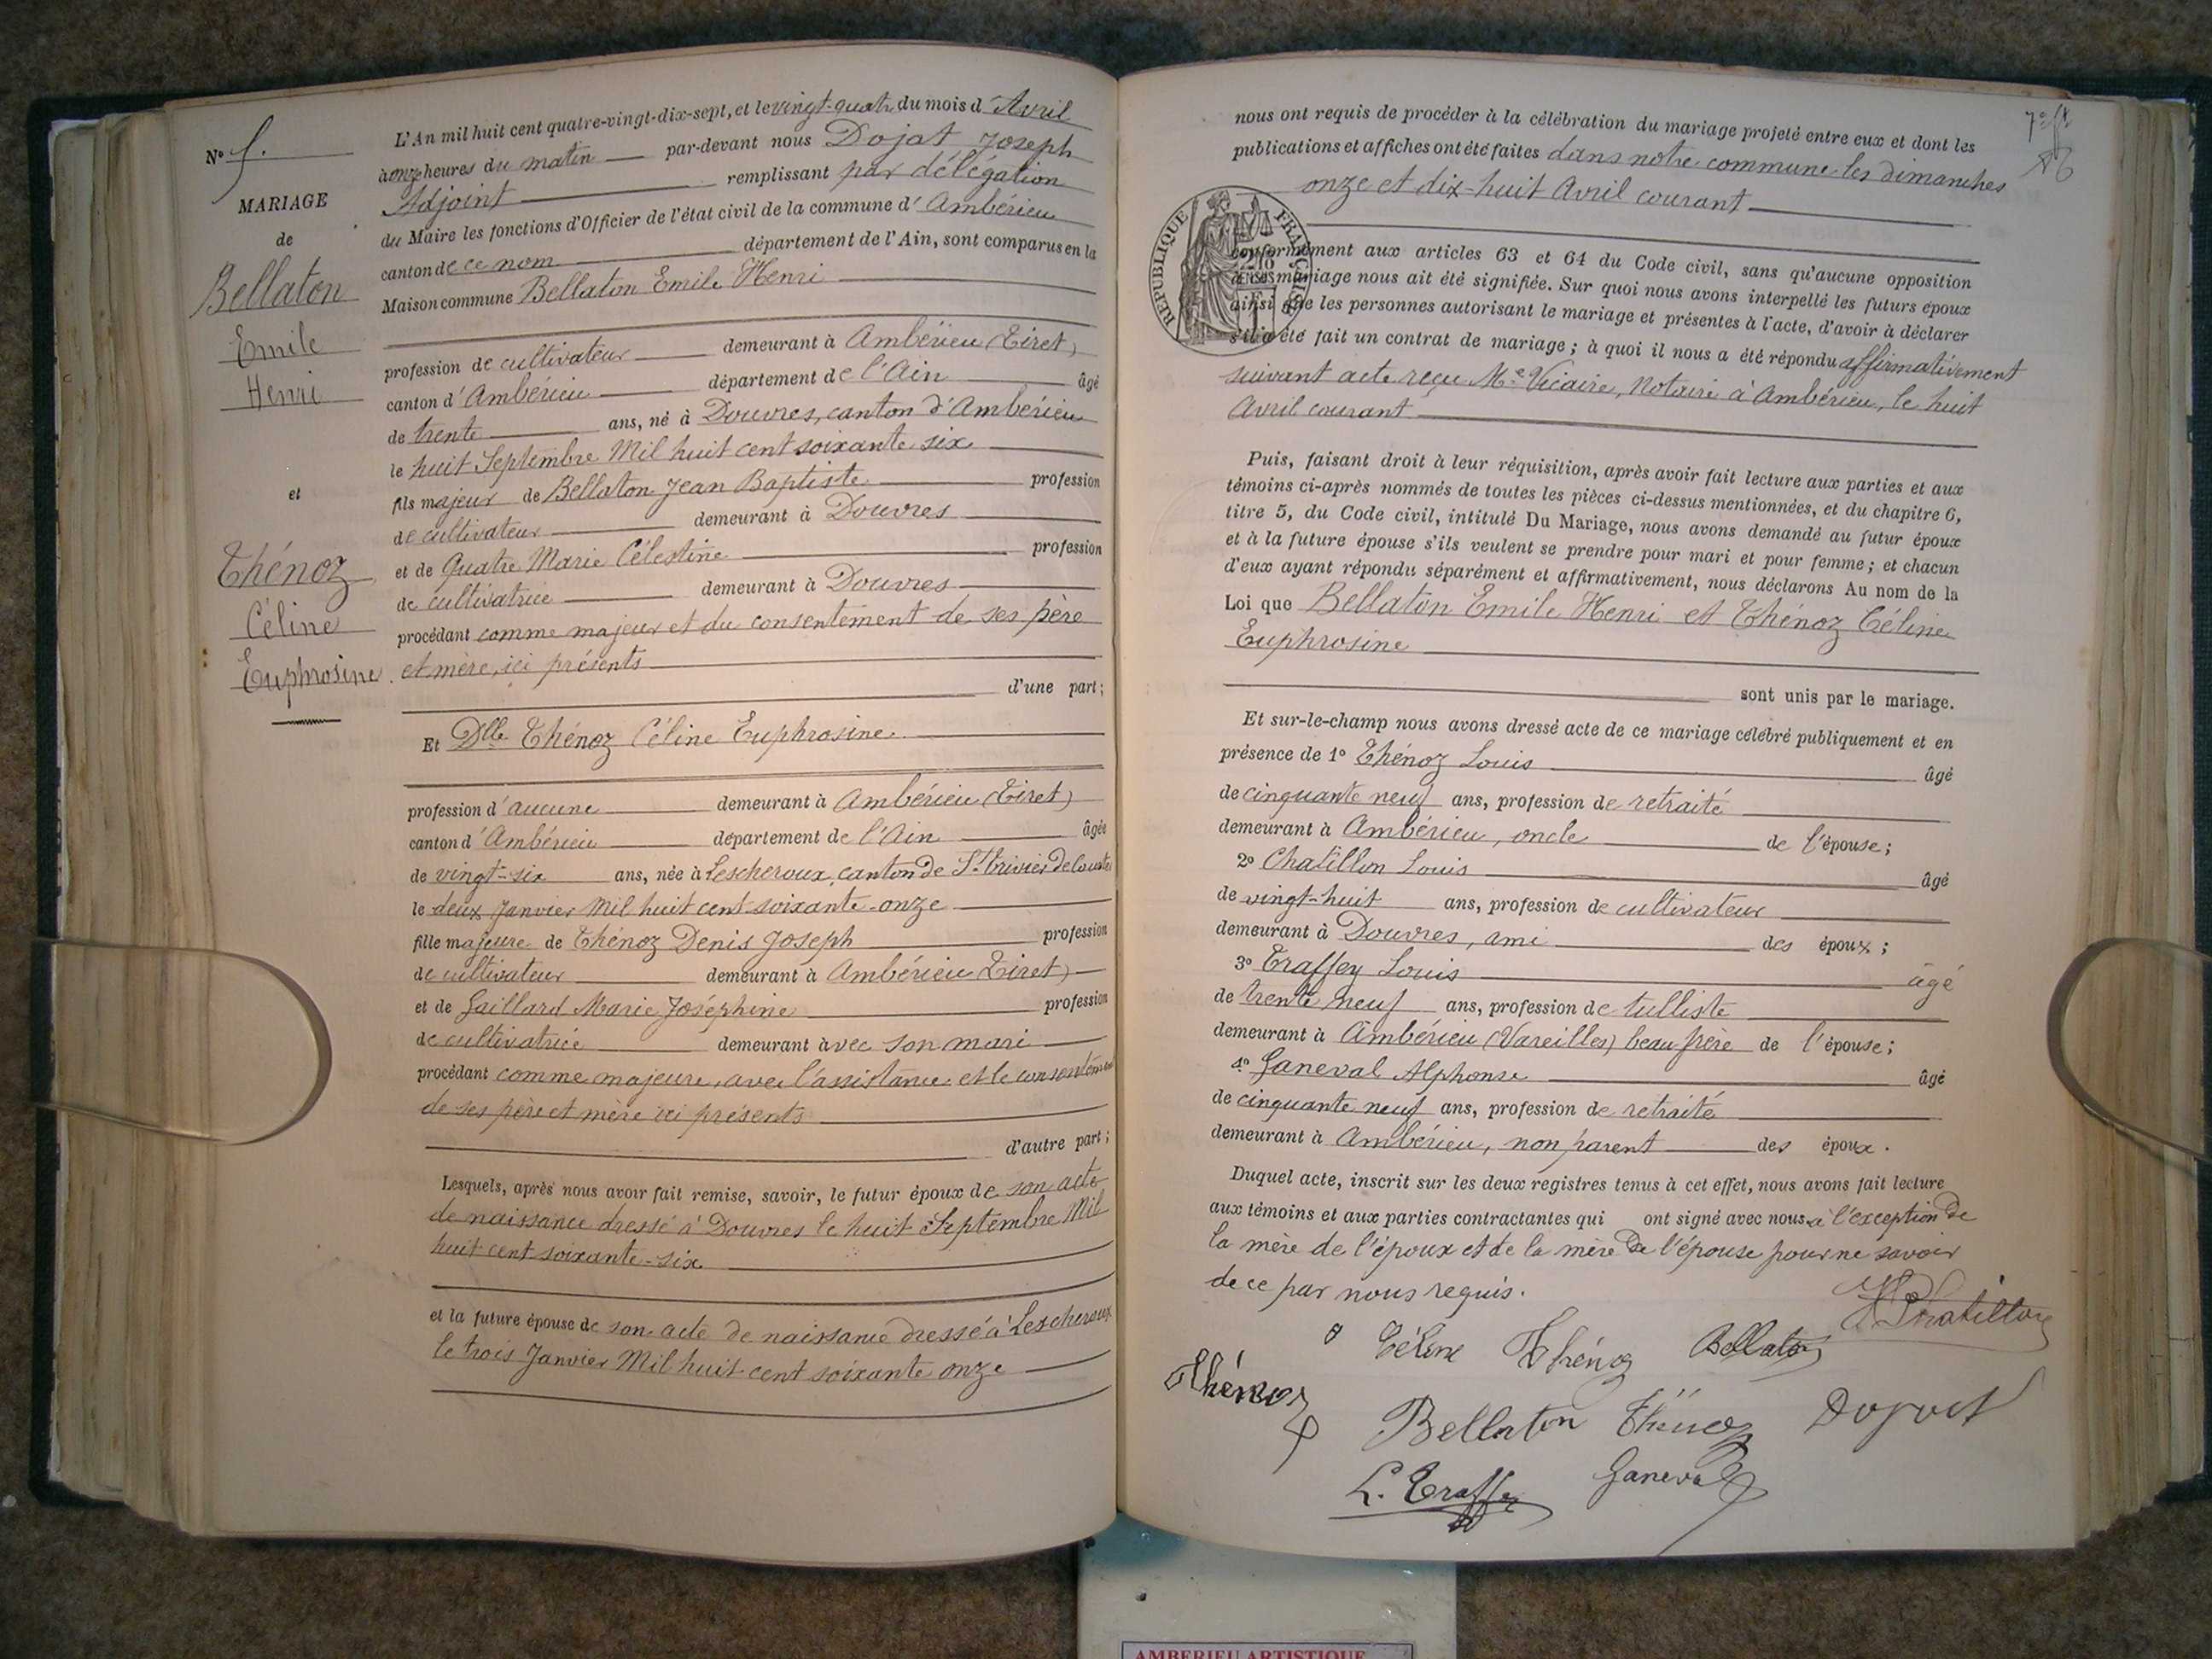 N° 5.
MARIAGE
de
Bellaton
Emile
Henri
et
Thénoz
Céline
Euphrosine.
L'An mil huit cent quatre-vingt-dix-sept, et le vingt-quatre du mois d'Avril
à onze heures du matin par-devant nous Dojat Joseph
Adjoint remplissant par délégation
du Maire les fonctions d'Officier de l'état civil de la commune d'Ambérieu
canton de ce nom département de l'Ain, sont comparus en la
Maison commune Bellaton Emile Henri
profession de cultivateur demeurant à Ambérieu (Tiret)
canton d'Ambérieu département de l'Ain âgé
de trente ans, né à Douvres, canton d'Ambérieu
le huit Septembre Mil huit cent soixante six
fils majeur de Bellaton Jean Baptiste profession
de cultivateur demeurant à Douvres
et de Quatre Marie Célestine profession
de cultivatrice demeurant à Douvres
procédant comme majeur et du consentement de ses père
et mère, ici présents
d'une part;
Et Dlle Thénoz Céline Euphrosine
profession d'aucune demeurant à Ambérieu (Tiret)
canton d'Ambérieu département de l'Ain âgée
de vingt-six ans, née à Lescheroux, canton de St Trivier De Courtes
le deux Janvier Mil huit cent soixante-onze
fille majeure de Thénoz Denis Joseph profession
de cultivateur demeurant à Ambérieu Tiret)
et de Gaillard Marie Joséphine profession
de cultivatrice demeurant avec son mari
procédant comme majeure, avec l'assistance et le consentement
de ses père et mère ici présents
d'autre part;
Lesquels, après nous avoir fait remise, savoir, le futur époux de son acte
de naissance dressé à Douvres le huit Septembre Mil
huit cent soixante-six
et la future épouse de son acte de naissance dressé à Lescheroux
le trois Janvier Mil huit cent soixante onze
nous ont requis de procéder à la célébration du mariage projeté entre eux et dont les
publications et affiches ont été faites dans notre commune les dimanches
onze et dix-huit Avril courant
RÉPUBLIQUE FRANÇAISE
conformément aux articles 63 et 64 du Code civil, sans qu'aucune opposition
à ce mariage nous ait été signifiée. Sur quoi nous avons interpellé les futurs époux
ainsi que les personnes autorisant le mariage et présentes à l'acte, d'avoir à déclarer
s'il a été fait un contrat de mariage; à quoi il nous a été répondu affirmativement
suivant acte reçu Me Vicaire, Notaire à Ambérieu, le huit
Avril courant
Puis, faisant droit à leur réquisition, après avoir fait lecture aux parties et aux
témoins ci-après nommés de toutes les pièces ci-dessus mentionnées, et du chapitre 6,
titre 5, du Code civil, intitulé Du Mariage, nous avons demandé au futur époux
et à la future épouse s'ils veulent se prendre pour mari et pour femme; et chacun
d'eux ayant répondu séparément et affirmativement, nous déclarons Au nom de la
Loi que Bellaton Emile Henri et Thénoz Céline
Euphrosine
sont unis par le mariage.
Et sur-le-champ nous avons dressé acte de ce mariage célébré publiquement et en
présence de 1° Thénoz Louis âgé
de cinquante neuf ans, profession de retraité
demeurant à Ambérieu, oncle de l'épouse;
2° Chatillon Louis âgé
de vingt-huit ans, profession de cultivateur
demeurant à Douvres, ami des époux;
3° Traffey Louis âgé
de trente neuf ans, profession de tulliste
demeurant à Ambérieu (Vareilles) beau frère de l'épouse;
4° Ganeval Alphonse âgé
de cinquante neuf ans, profession de retraité
demeurant à Ambérieu, non parent des époux.
Duquel acte, inscrit sur les deux registres tenus à cet effet, nous avons fait lecture
aux témoins et aux parties contractantes qui ont signé avec nous à l'exception de
la mère de l'époux et de la mère de l'épouse pour ne savoir
de ce par nous requis.
Chatillon
Céline Thénoz Bellaton
Thénoz
Bellaton Thénoz Dojat
L. Traffey Ganeval
AMBERIEU ARTISTIQUE